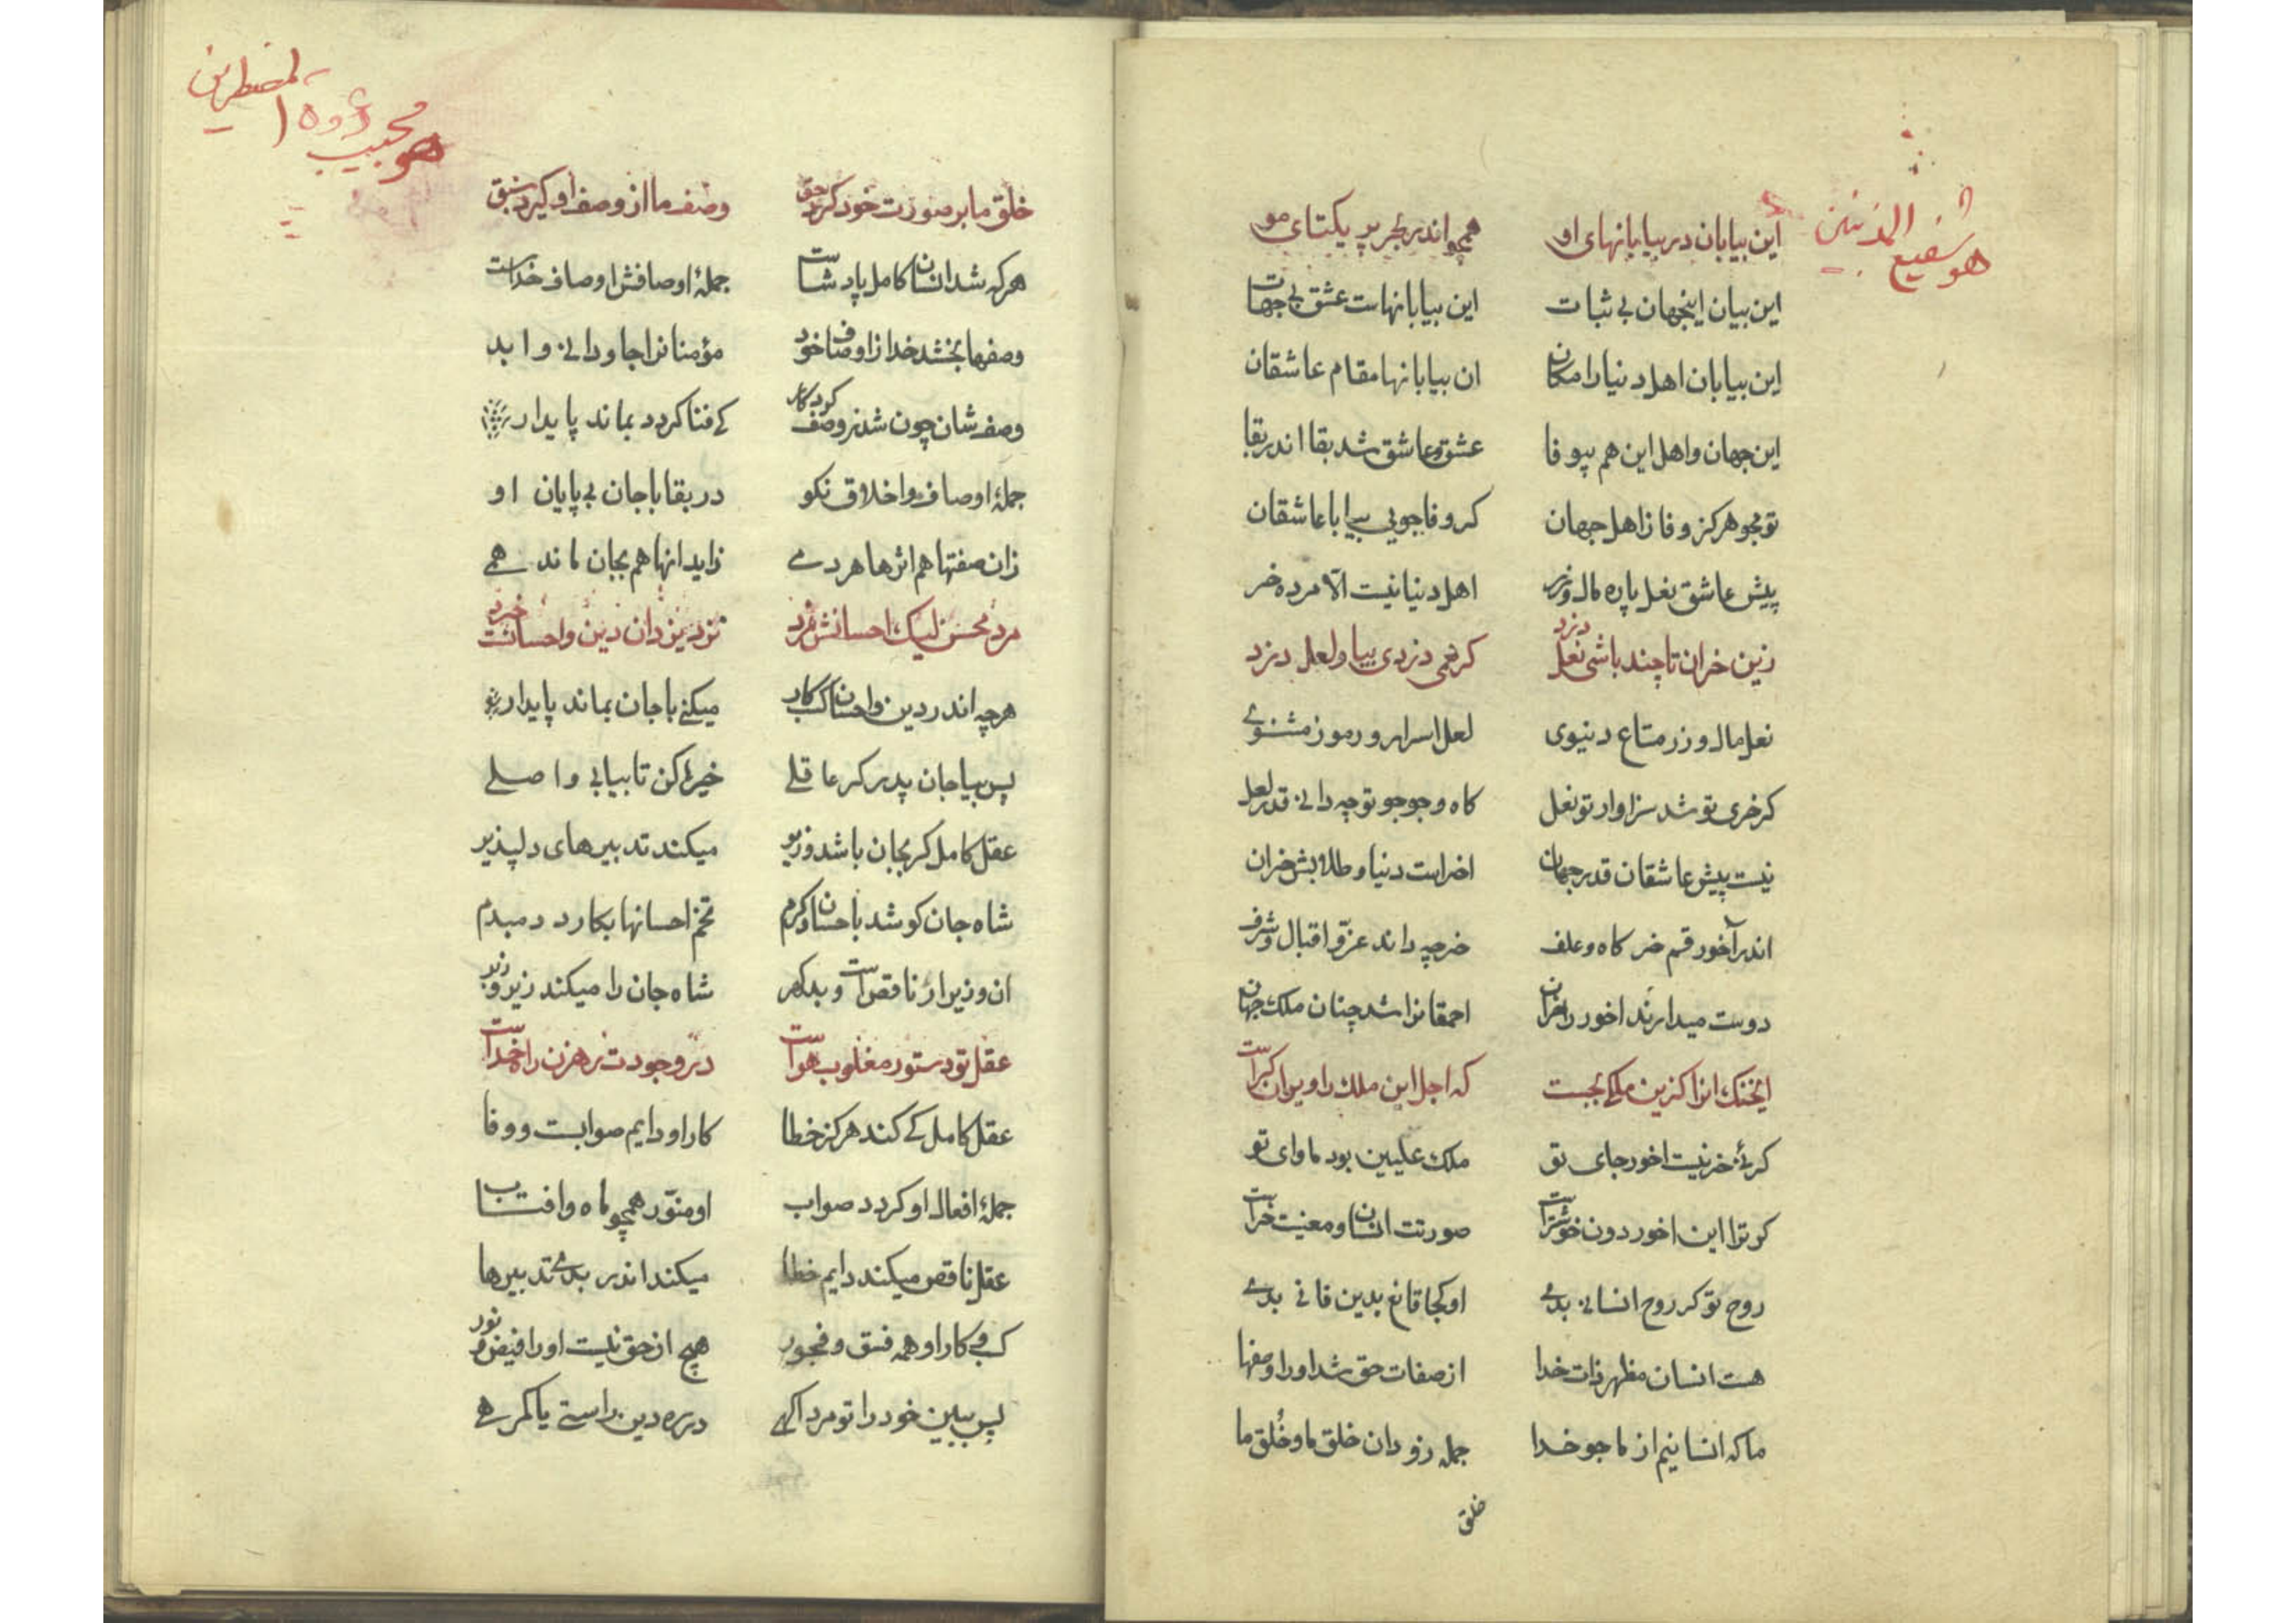 هو شفیع المذنبین
این بیابان در بیابانهای او همچو اندر بحر پر یکتای مو
این بیان اینجهان بی ثبات این بیابانهاست عشق بی جهات
این بیابان اهل دنیا را مکان ان بیابانها مقام عاشقان
این جهان و اهل این هم بیوفا عشق و عاشق شد بقا اندر بقا
تو مجو هرکز وفا ز اهل جهان کر وفا جویی بیا با عاشقان
پیش عاشق نعل پاره مال و زر اهل دنیا نیست الا مرده خر
زین خران تا چند باشی نعل دزد کر همی دزدی بیا و لعل دزد
نعل مال و زر متاع دنیوی لعل اسرار و رموز مثنوی
کر خری تو شد سزاوار تو نعل کاه و جو جو تو چه دانی قدر لعل
نیست پیش عاشقان قدر جهان اخر است دنیا و طلابش خران
اندر آخور قسم خر کاه و علف خر چه داند عز و اقبال و شرف
دوست میدارند اخور را خران احمقانرا شد چنان ملک جهان
ایخنک انرا کزین ملکی بجست که اجل این ملک را ویران کراست
کر نهٔ خر نیست اخور جای تو ملک علیین بود ماوای تو
کر ترا این اخور دون خوشتراست صورتت انسان و معنیت خراست
روح تو کر روح انسانی بدی او کجا قانع بدین فانی بدی
هست انسان مظهر ذات خدا از صفات حق شد او را وصفها
ما که انسانیم از ما جو خدا جمله زو دان خلق ما و خُلق ما
خلق
هو مجیب دعوة المضطرین
خلق ما بر صورت خود کرد حق وصف ما از وصف او کیرد سبق
هرکه شد انسان کامل پادشاست جملهٔ اوصافش اوصاف خداست
وصفها بخشد خدا ز اوصاف خود مؤمنانرا جاودانی و ابد
وصفشان چون شد ز وصف کردکار کی فنا کردد بماند پایدار
جملهٔ اوصاف و اخلاق نکو در بقا با جان بی پایان او
زان صفتها هم اثرها هر دمی زاید انها هم بجان ماند همی
مرد محسن لیک احسانش نمرد نزد یزدان دین و احسان نیست خرد
هرچه اندر دین و احسان کسب کار میکنی با جان بماند پایدار
پس بیا جان پدر کر عاقلی خیر کن تا بیابی واصلی
عقل کامل کر بجان باشد وزیر میکند تدبیرهای دلپذیر
شاه جان کو شد با حسان و کرم تخم احسانها بکارد دمبدم
ان وزیر ار ناقص است و بدکهر شاه جان را میکند زیر و زبر
عقل تو دستور مغلوب هواست در وجودت رهزن راه خداست
عقل کامل کی کند هرکز خطا کار او دایم صوابست و وفا
جملهٔ افعال او کردد صواب او منور همچو ماه و افتاب
عقل ناقص میکند دایم خطا میکند اندر بدی تدبیرها
کسب و کار او همه فسق و فجور هیچ از حق نیست او را فیض و نور
پس ببین خود را تو مرد اکهی در ره دین راستی یا کمرهی